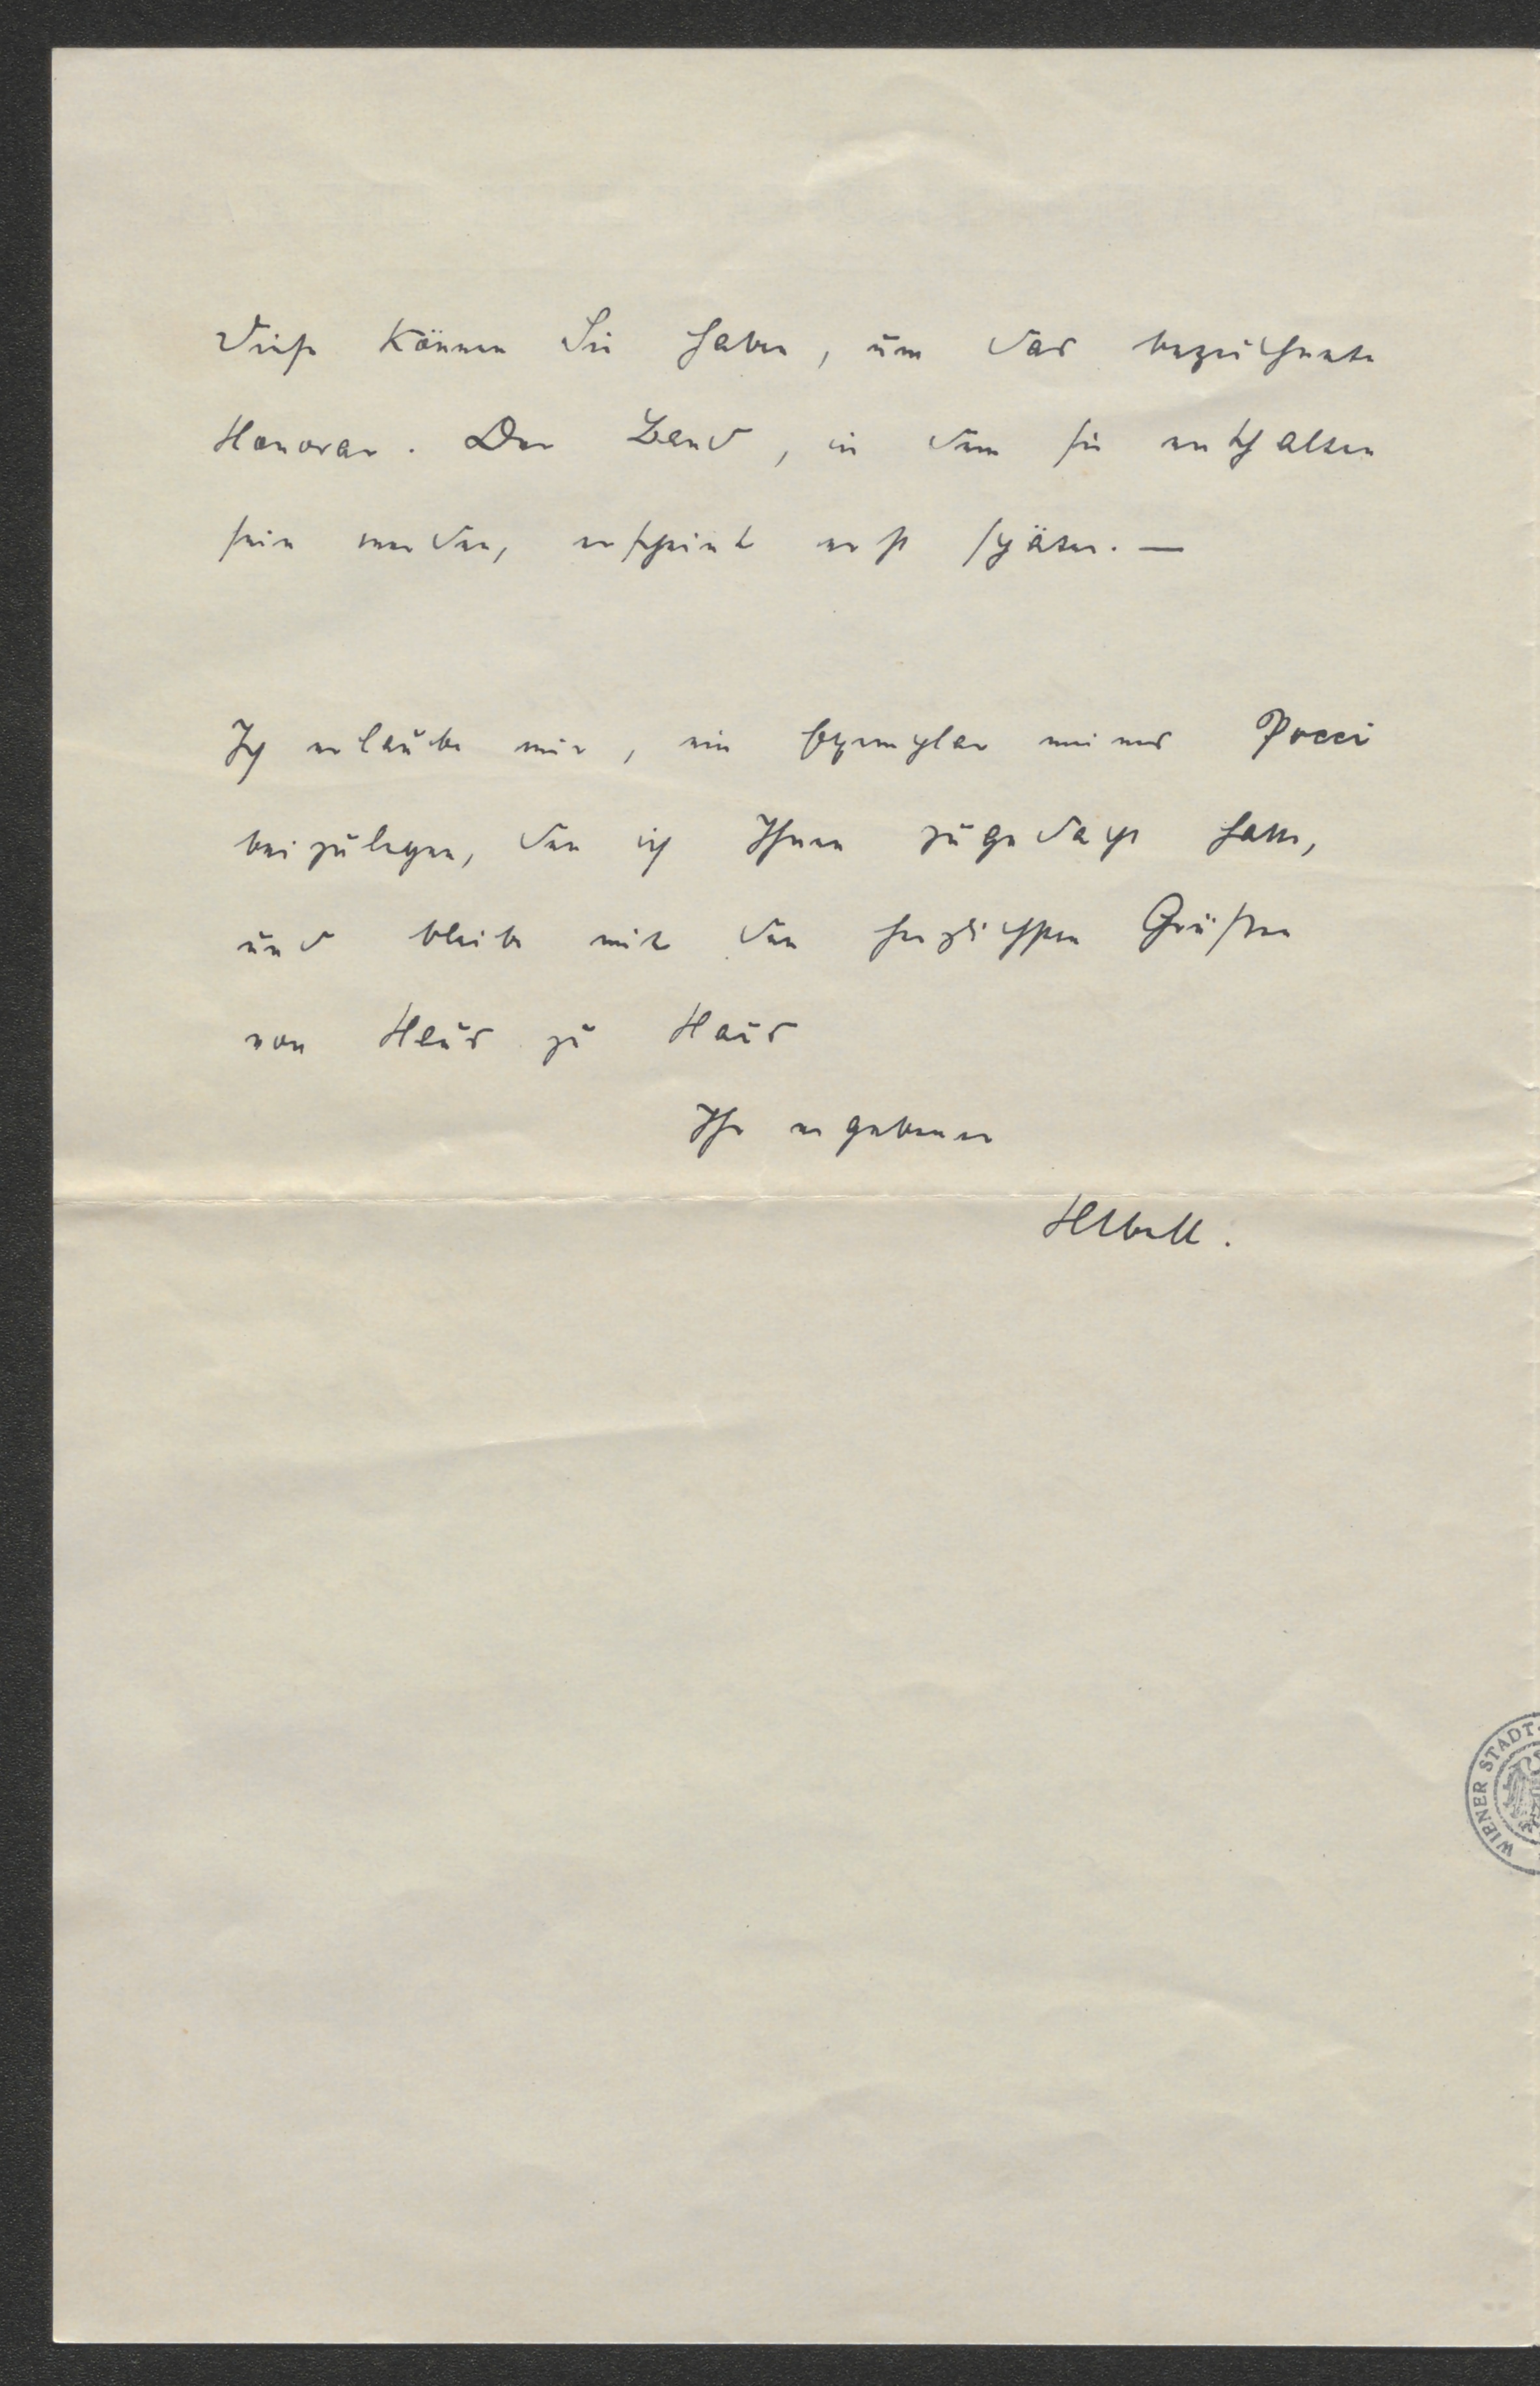 Diese können Sie haben, um das bezeichnete
Honorar. Der Band, in dem sie enthalten
sein werden, erscheint erst später. —
Ich erlaube mir, ein Exemplar meines Pocci
beizulegen, den ich Ihnen zugedacht hatte,
und bleibe mit den herzlichsten Grüßen
von Haus zu Haus
Ihr ergebener
WIENER STADT-